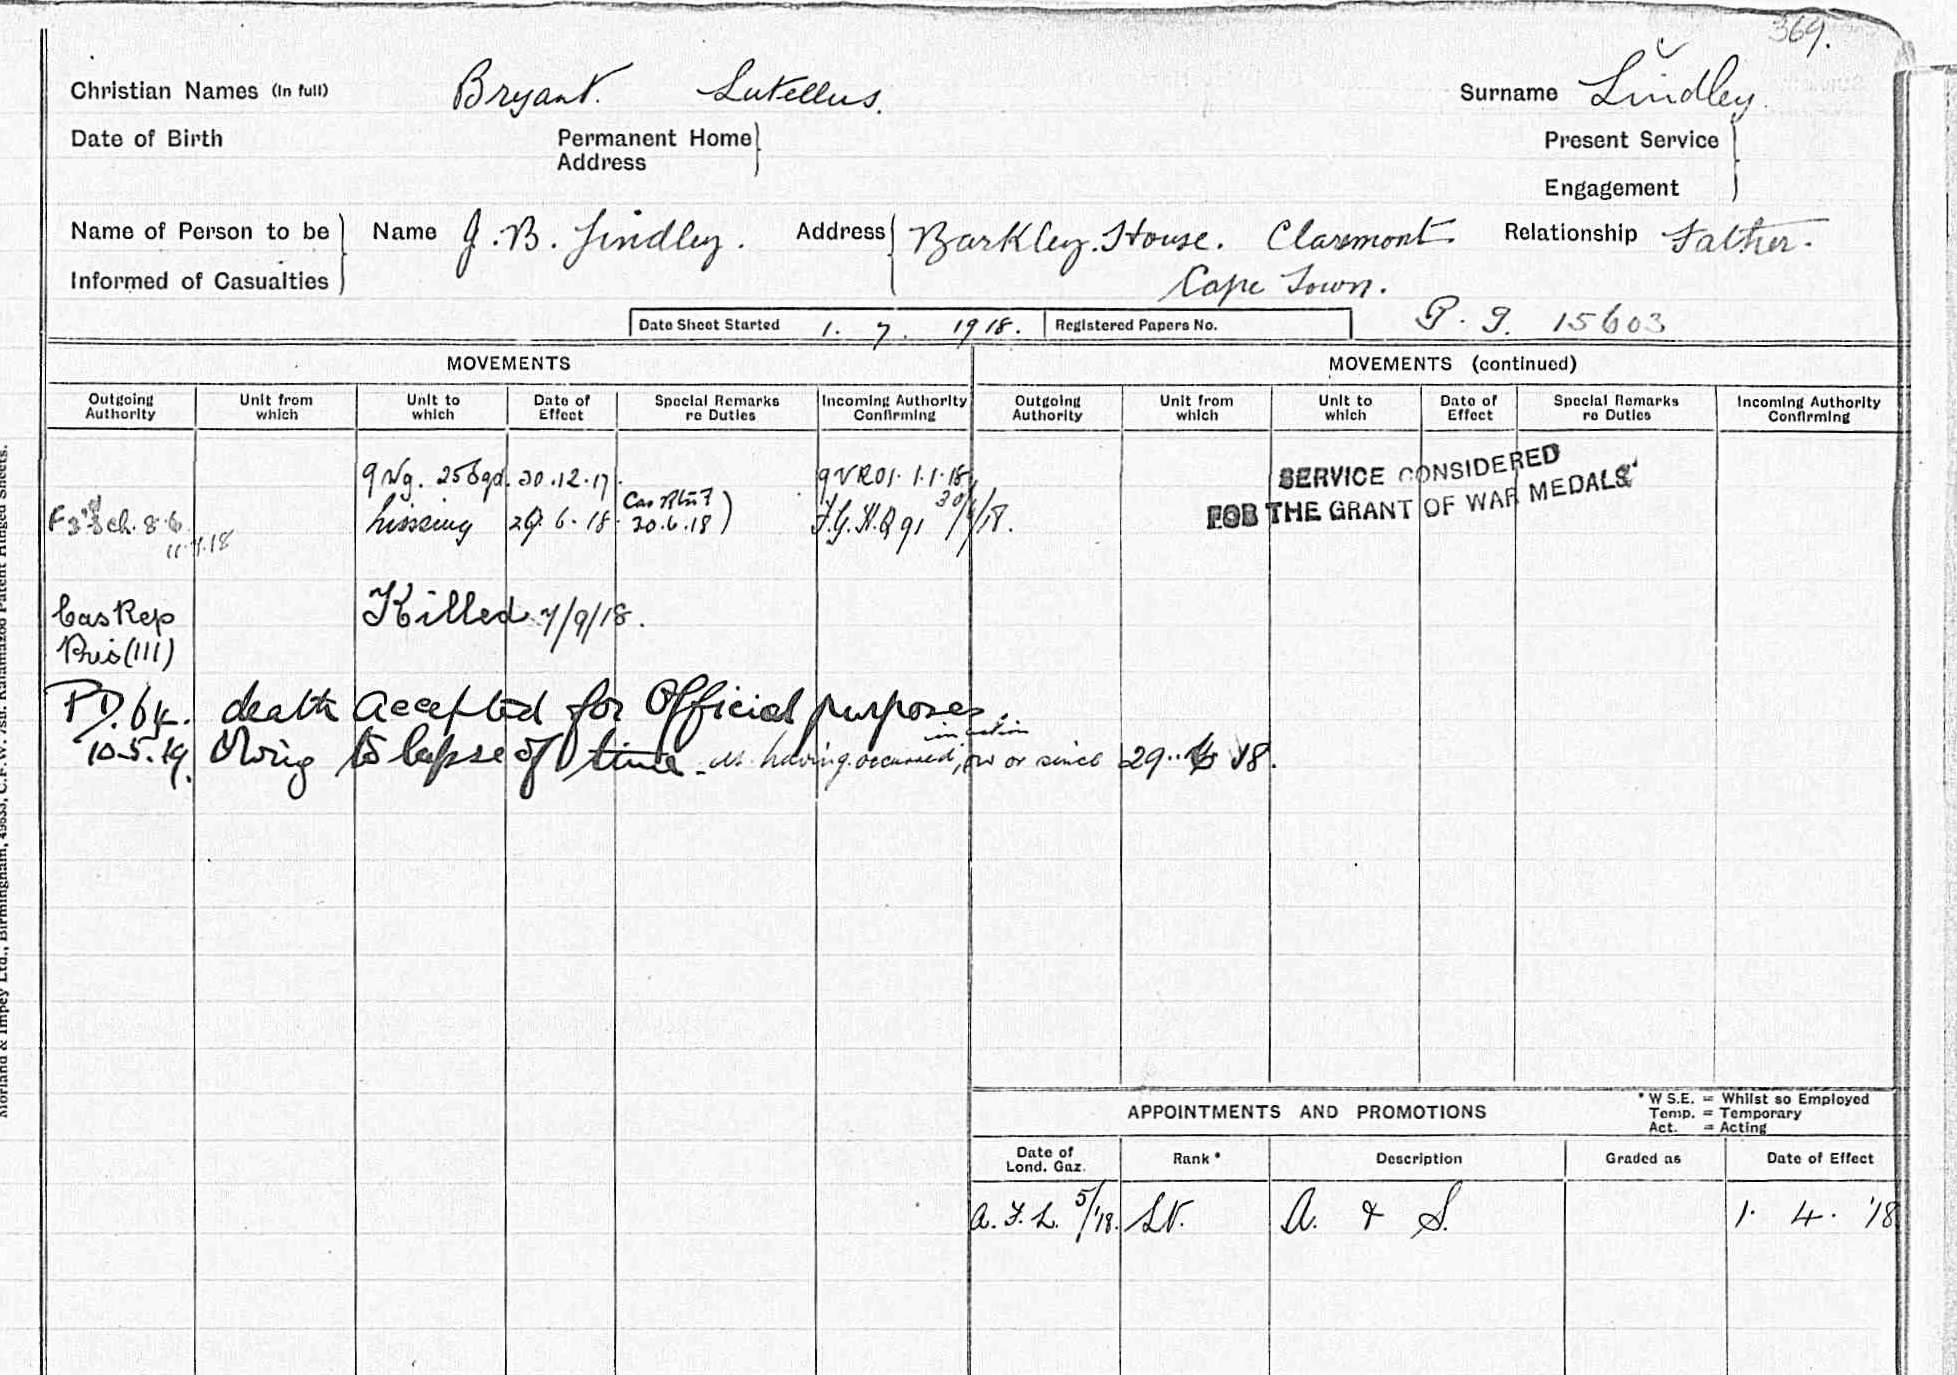 369.
Christian Names (In full) Bryant. Lutellus. Surname Lindley.
Date of Birth Permanent Home Address Present Service
Engagement
Name of Person to be Informed of Casualties Name J. B. Lindley. Address Barkley. House. Claremont. Relationship Father.
Cape Town.
Date Sheet Started 1. 7. 1918. Registered Papers No. P. 15603
MOVEMENTS MOVEMENTS (continued)
Outgoing Authority Unit from which Unit to which Date of Effect Special Remarks re Duties Incoming Authority Confirming Outgoing Authority Unit from which Unit to which Date of Effect Special Remarks re Duties Incoming Authority Confirming
9 Wg. 25 Sqd. 30.12.17. 9 VRO1. 1.1.18.
SERVICE CONSIDERED
FOR THE GRANT OF WAR MEDALS
Missing 29.6.18. 30.6.18) 30/6/18.
Cas Rep Killed 7/9/18.
Pris (111)
P.D. 64. death accepted for Official purposes
10.5.19. Owing to lapse of time - as having occurred, in action on or since 29.. 6 18.
APPOINTMENTS AND PROMOTIONS
* W S.E. = Whilst so Employed
Temp. = Temporary
Act. = Acting
Date of Lond. Gaz. Rank * Description Graded as Date of Effect
A. F. L. 5/'18. Lt. A. & S. 1. 4. '18
Morland & Impey Ltd., Birmingham, 49633, C.F.W. Asn. Kalamazoo Patent Hinged Sheets.